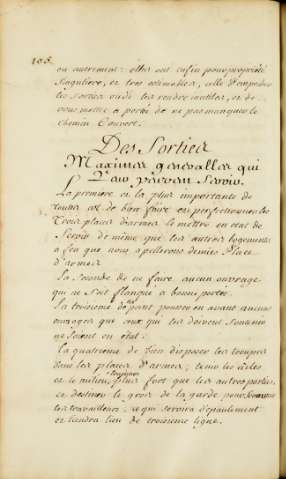 108.
ou autrement: elles ont enfin pour propriété
singuliere, et tres estimable, celle d'empecher
les sorties ou de les rendre inutiles, et de
vous mettre a portée de ne pas manquer le
Chemin Couvert.
Des Sorties
Maximes generalles qui
Peuvent Servir.
La premiere et la plus importante de
toutes est de bien faire et perfectionner les
Trois places d'armes le mettre en etat de
servir de même que les autres logements
a feu que nous apellerons demies Place
d'armes
La Seconde de ne faire aucun ouvrage
qui ne soit flanqué a bonne portée.
La troisieme de point pousser en avant aucuns
ouvrages que ceux qui les doivent soutenir
ne soient en état.
La quatrieme de bien disposer les troupes
dans les places d'armes; tenir les ailes
et le milieu toujours plus fort que les autres parties,
et destiner le gros de la garde pour soutenir
les travailleurs; ce qui servira d'epaulement
et tiendra lieu de troisieme ligne.